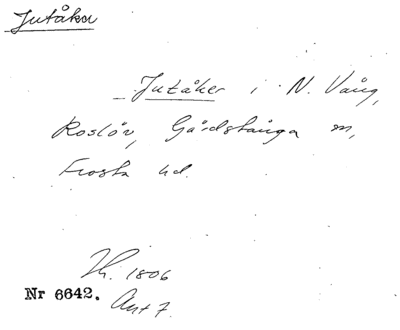 Jutåker
Jutåker i N. Vång,
Roslöv, Gårdstånga m,
Frosta hd.
Th. 1806
Nr 6642.
Ant 7.